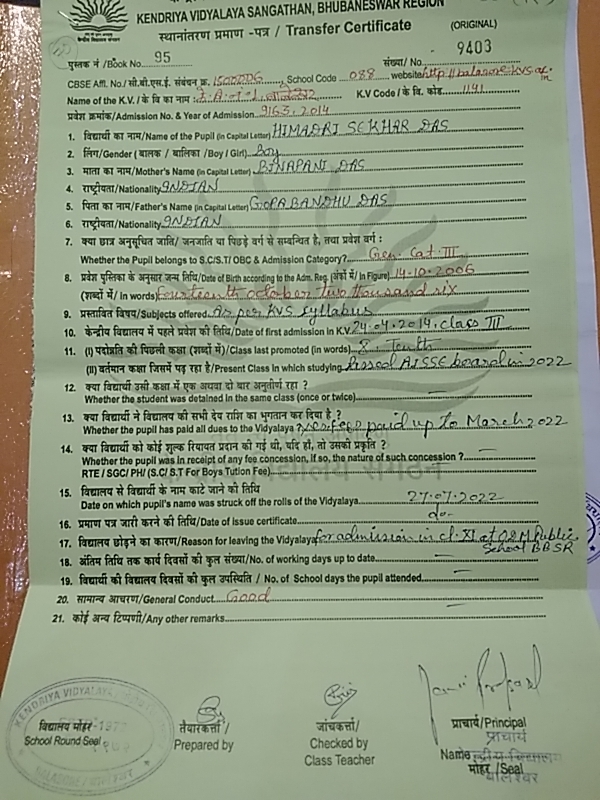 KENDRIYA VIDYALAYA SANGATHAN, BHUBANESWAR REGION
स्थानांतरण प्रमाण -पत्र / Transfer Certificate
(ORIGINAL)
पुस्तक नं /Book No. 95 संख्या/ No. 9403
CBSE Affl. No./ सी.बी.एस.ई. संबंधन क्र. 1500006 School Code 088 website http://balasore.kvs.ac.in
Name of the K.V. / के वि का नाम : K.V. Code / के वि. कोड. 1141
प्रवेश क्रमांक/Admission No. & Year of Admission 9163, 2014
1. विद्यार्थी का नाम/Name of the Pupil (in Capital Letter) HIMADRI SEKHAR DAS
2. लिंग/Gender ( बालक / बालिका /Boy / Girl) Boy
3. माता का नाम/Mother's Name (in Capital Letter) BINAPANI DAS
4. राष्ट्रीयता/Nationality INDIAN
5. पिता का नाम/Father's Name (in Capital Letter) GOPABANDHU DAS
6. राष्ट्रीयता/Nationality INDIAN
7. क्या छात्र अनुसूचित जाति/ जनजाति या पिछड़े वर्ग से सम्बन्धित है, तथा प्रवेश वर्ग :
Whether the Pupil belongs to S.C/S.T/ OBC & Admission Category? Gen. Cat. III
8. प्रवेश पुस्तिका के अनुसार जन्म तिथि/Date of Birth according to the Adm. Reg. (अंकों में/ in Figure) 14-10-2006
(शब्दों में/ in words) fourteenth october two thousand six
9. प्रस्तावित विषय/Subjects offered As per KVS syllabus
10. केन्द्रीय विद्यालय में पहले प्रवेश की तिथि/Date of first admission in K.V. 24.04.2014, class III
11. (I) पदोन्नति की पिछली कक्षा (शब्दों में)/Class last promoted (in words) X Tenth
(II) वर्तमान कक्षा जिसमें पढ़ रहा है/Present Class in which studying Passed AISSE board in 2022
12. क्या विद्यार्थी उसी कक्षा में एक अथवा दो बार अनुतीर्ण रहा ?
Whether the student was detained in the same class (once or twice) —
13. क्या विद्यार्थी ने विद्यालय की सभी देय राशि का भुगतान कर दिया है ?
Whether the pupil has paid all dues to the Vidyalaya ? yes, fees paid up to March 2022
14. क्या विद्यार्थी को कोई शुल्क रियायत प्रदान की गई थी, यदि हाँ, तो उसकी प्रकृति ?
Whether the pupil was in receipt of any fee concession, if so, the nature of such concession ? —
RTE / SGC/ PH/ (S.C/ S.T For Boys Tution Fee) —
15. विद्यालय से विद्यार्थी के नाम काटे जाने की तिथि
Date on which pupil's name was struck off the rolls of the Vidyalaya 27.07.2022
16. प्रमाण पत्र जारी करने की तिथि/Date of issue certificate do-
17. विद्यालय छोड़ने का कारण/Reason for leaving the Vidyalaya for admission in cl. XI at ODM Public
School BBSR
18. अंतिम तिथि तक कार्य दिवसों की कुल संख्या/No. of working days up to date —
19. विद्यार्थी की विद्यालय दिवसों की कुल उपस्थिति / No. of School days the pupil attended —
20. सामान्य आचरण/General Conduct Good
21. कोई अन्य टिप्पणी/Any other remarks —
विद्यालय मोहर
School Round Seal
तैयारकर्त्ता /
Prepared by
जांचकर्त्ता/
Checked by
Class Teacher
प्राचार्य/Principal
प्राचार्य
Name
मोहर /Seal